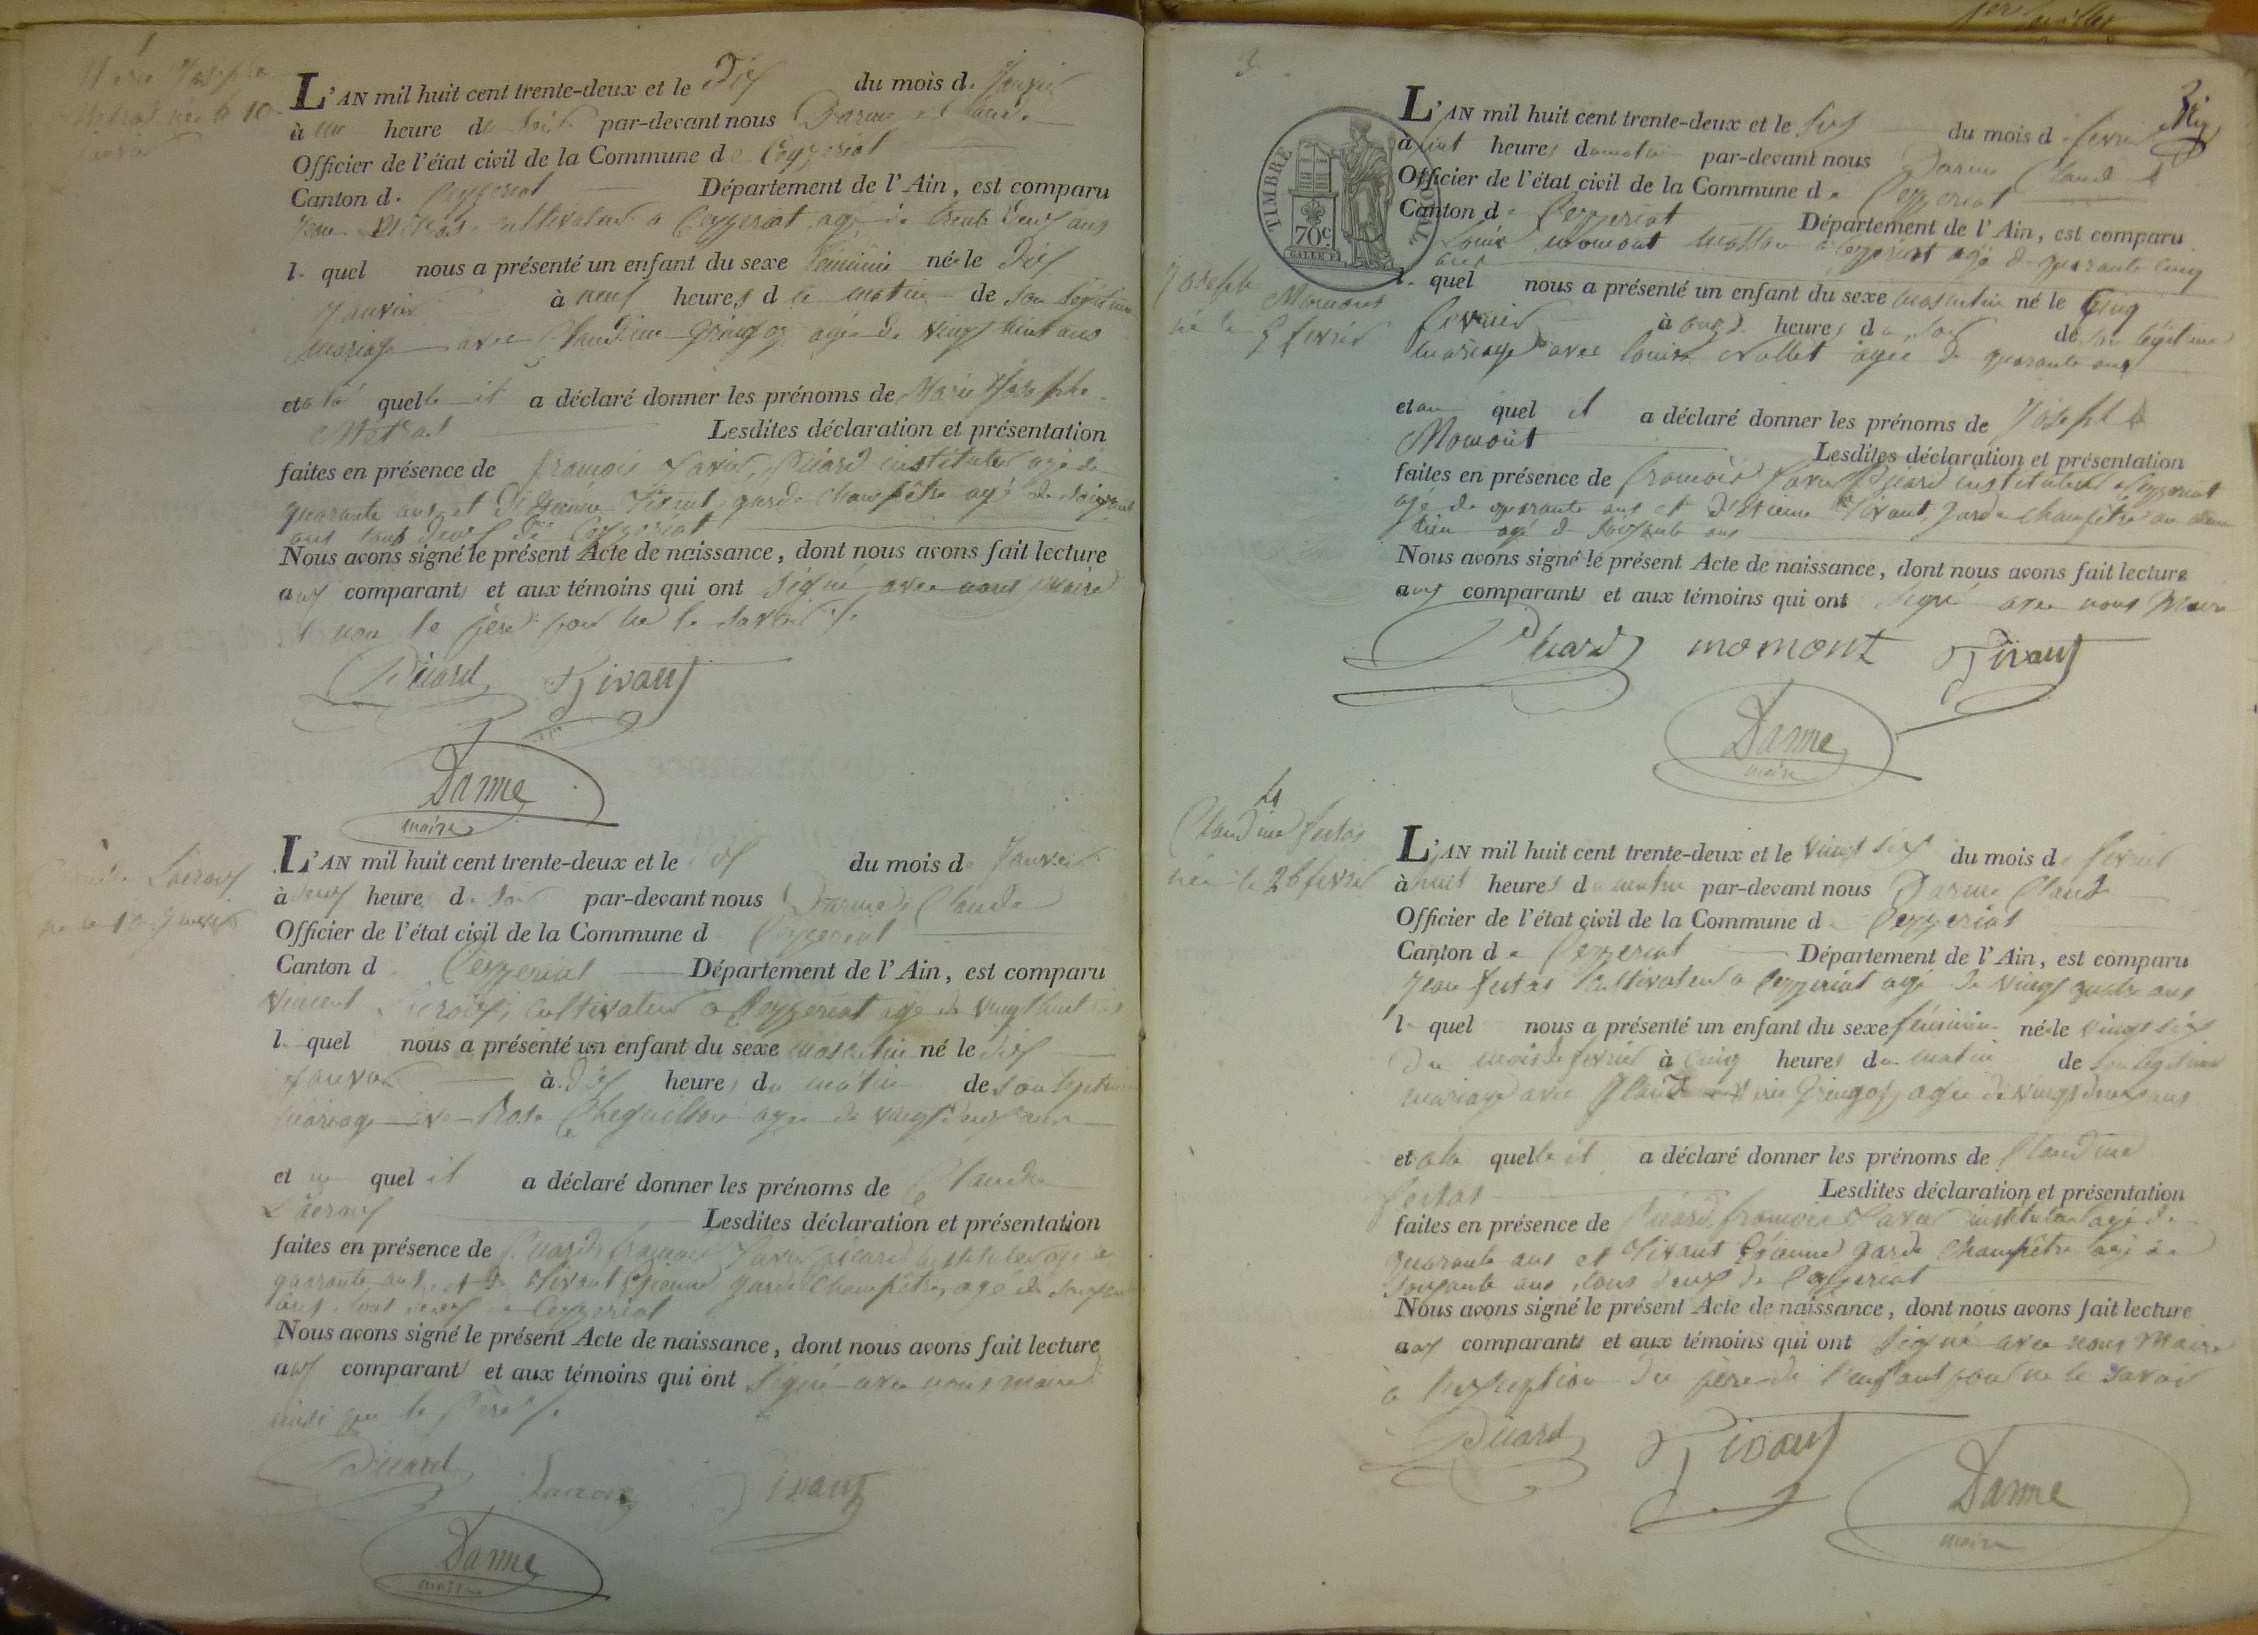 1
Marie Josephe
Metras née le 10
janvier
L'AN mil huit cent trente-deux et le Dix du mois de Janvier
à une heure du soir par-devant nous Darme Claude
Officier de l'état civil de la Commune de Ceyzeriat
Canton de Ceyzeriat Département de l'Ain, est comparu
Jean Metras cultivateur a Ceyzeriat agé de trente deux ans
lequel nous a présenté un enfant du sexe féminin née le Dix
Janvier à neuf heures du matin de son légitime
mariage avec Claudine Gringoz agée de vingt huit ans
et a la quelle il a déclaré donner les prénoms de Marie Josephe
Metras Lesdites déclaration et présentation
faites en présence de françois Xavier Picard instituteur agé de
quarante ans et D'Etienne Tivant garde champêtre agé de soixante
ans tous deux de Ceyzeriat
Nous avons signé le présent Acte de naissance, dont nous avons fait lecture
aux comparants et aux témoins qui ont signé avec nous maire
et non le père pour ne le savoir
Picard Tivant
Darme
maire
Lacroix
né le 10 Janvier
L'AN mil huit cent trente-deux et le dix du mois de Janvier
à deux heures du soir par-devant nous Darme Claude
Officier de l'état civil de la Commune d Ceyzeriat
Canton d Ceyzeriat Département de l'Ain, est comparu
Vincent Lacroix, cultivateur a Ceyzeriat agé de vingt huit ans
lequel nous a présenté un enfant du sexe masculin né le dix
Janvier à Dix heures du matin de son légitime
mariage avec Rose agée de vingt deux ans
et au quel il a déclaré donner les prénoms de Claude
Lacroix Lesdites déclaration et présentation
faites en présence de Picard françois Xavier instituteur agé de
quarante ans, et de Tivant Etienne garde champêtre, agé de soixante
ans tous deux de Ceyzeriat
Nous avons signé le présent Acte de naissance, dont nous avons fait lecture
aux comparants et aux témoins qui ont signé avec nous maire
ainsi que le Père
Picard Lacroix Tivant
Darme
maire
1er
3
TIMBRE ROYAL
70 c.
Josephe Momont
né le 5 février
L'AN mil huit cent trente-deux et le six du mois de fevrier
à huit heures du matin par-devant nous Darme Claude
Officier de l'état civil de la Commune de Ceyzeriat
Canton de Ceyzeriat Département de l'Ain, est comparu
Louis Momont Masson a Ceyzeriat agé de quarante cinq
ans
lequel nous a présenté un enfant du sexe masculin né le Cinq
fevrier à onze heures du soir de son légitime
mariage avec Louise Vallet agée de quarante ans
et au quel il a déclaré donner les prénoms de Joseph
Momont Lesdites déclaration et présentation
faites en présence de françois Xavier Picard instituteur a Ceyzeriat
agé de quarante ans et D'Etienne Tivant, garde champêtre au même
lieu agé de soixante ans
Nous avons signé le présent Acte de naissance, dont nous avons fait lecture
aux comparants et aux témoins qui ont signé avec nous Maire
Picard momont Tivant
Darme
maire
4
Claudine festas
née le 26 fevrier
L'AN mil huit cent trente-deux et le vingt six du mois de fevrier
à huit heures du matin par-devant nous Darme Claude
Officier de l'état civil de la Commune de Ceyzeriat
Canton de Ceyzeriat Département de l'Ain, est comparu
Jean festas Cultivateur a Ceyzeriat agé de vingt quatre ans
lequel nous a présenté un enfant du sexe féminin née le vingt six
Du mois de fevrier à Cinq heures du matin de son légitime
mariage avec Gringoz, agée de vingt deux ans
et a la quelle il a déclaré donner les prénoms de Claudine
festas Lesdites déclaration et présentation
faites en présence de Picard françois Xavier instituteur agé de
quarante ans et Tivant Etienne garde Champêtre agé de
soixante ans, tous deux de Ceyzeriat
Nous avons signé le présent Acte de naissance, dont nous avons fait lecture
aux comparants et aux témoins qui ont signé avec nous Maire
à l'exception du père de l'enfant pour ne le savoir
Picard Tivant
Darme
maire